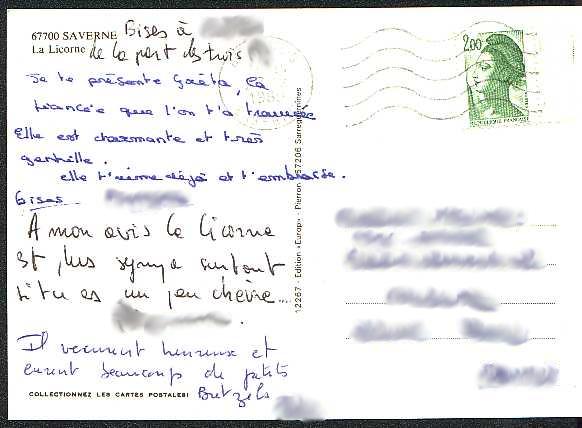 67700 SAVERNE
La Licorne
Bises à
de la part des trois
Je te présente Gaëta, la
fiancée que l'on t'a trouvée
Elle est charmante et très
gentille.
elle t'aime déjà et t'embrasse.
Bises
A mon avis la licorne
est plus sympa surtout
si tu es un peu chèvre....
Il vecurent heureux et
eurent beaucoup de petits
Bretzels
COLLECTIONNEZ LES CARTES POSTALES!
12257 - Edition «Europ» - Pierron - 57206 Sarreguemines
2,00